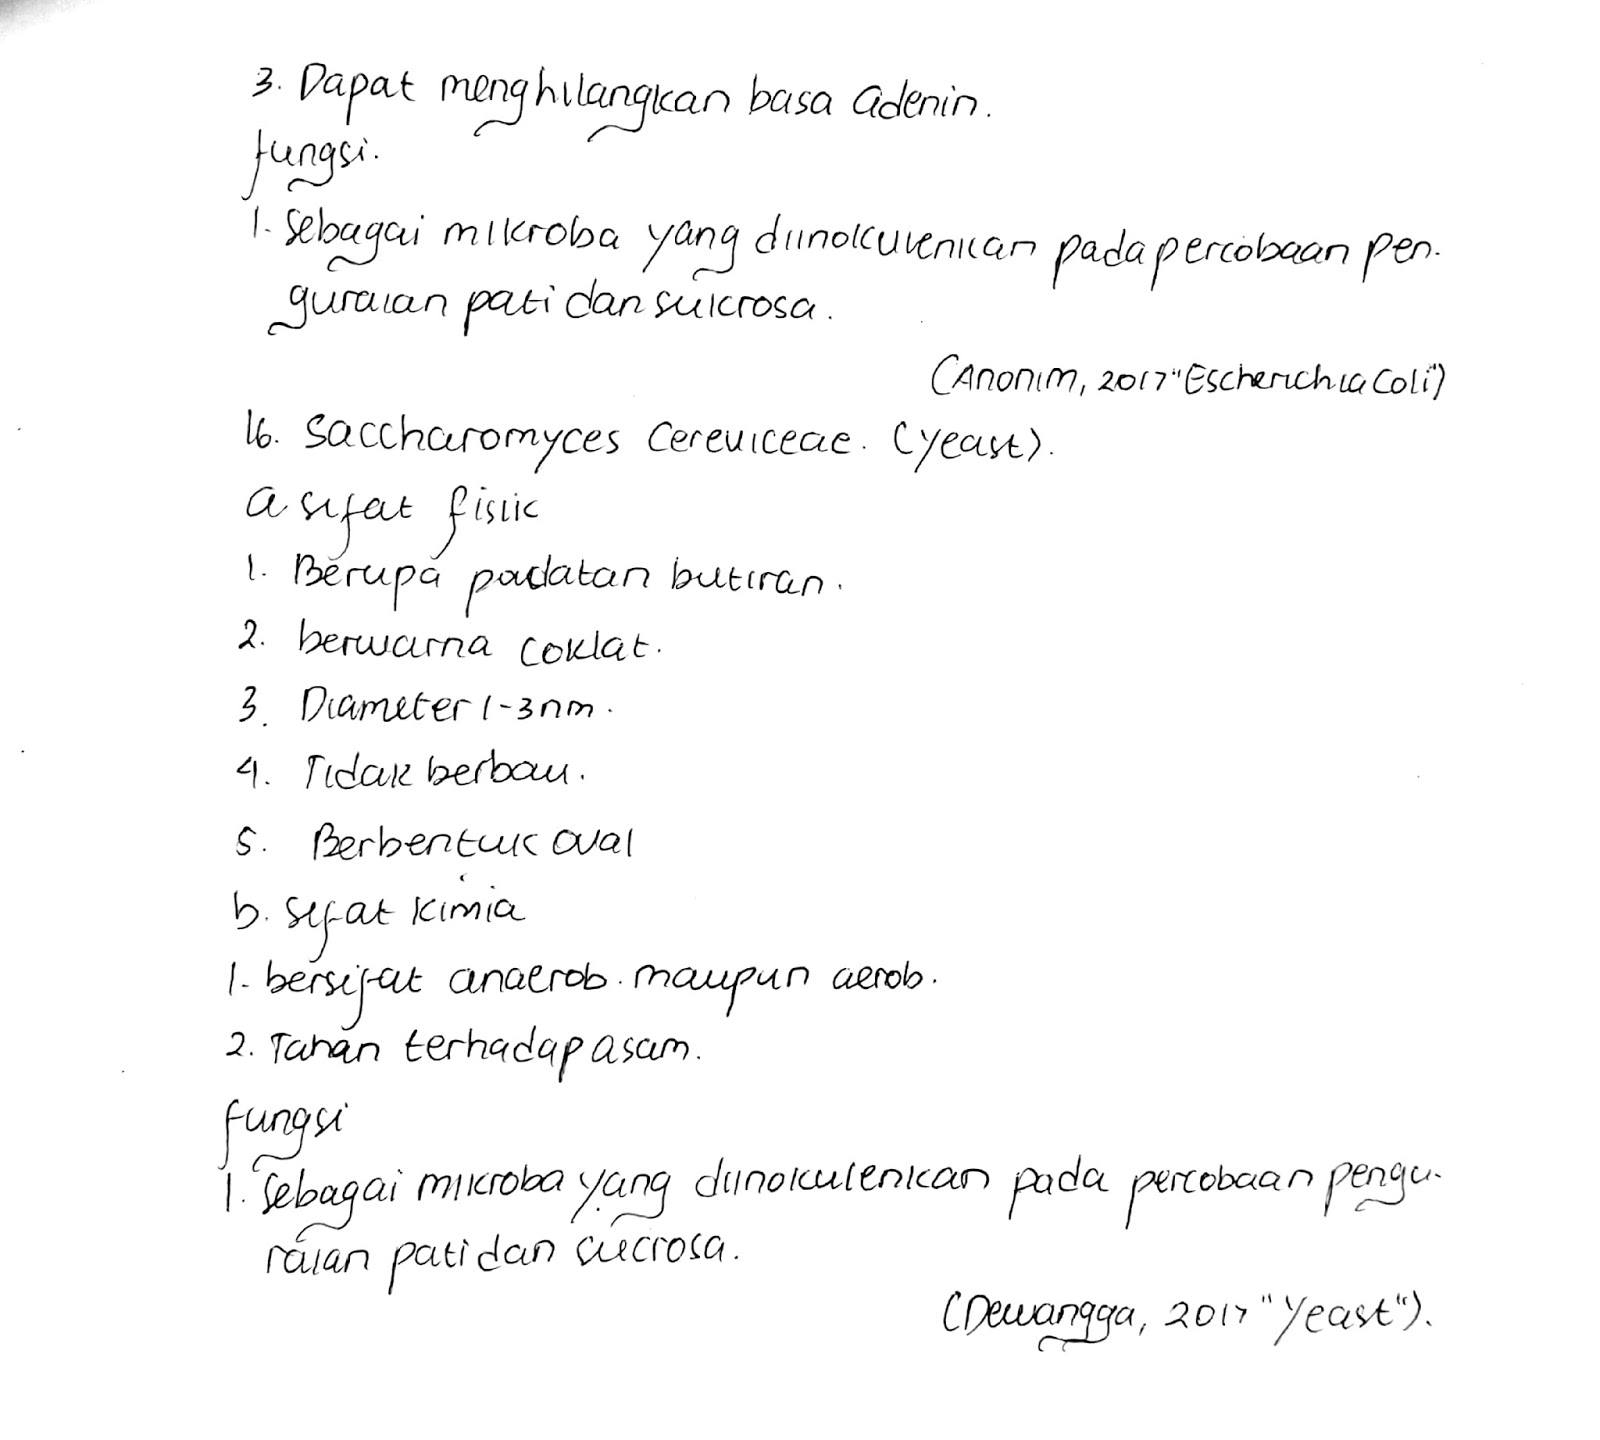 3. Dapat menghilangkan basa adenin.
fungsi.
1. Sebagai mikroba yang diinokulenkan pada percobaan pen-
guraian pati dan sukrosa.
(Anonim, 2017 "Escherichia Coli")
16. Saccharomyces Cereviceae. (yeast).
a sifat fisik
1. Berupa padatan butiran.
2. berwarna coklat.
3. Diameter 1-3nm.
4. Tidak berbau.
5. Berbentuk oval
b. sifat kimia
1. bersifat anaerob. maupun aerob.
2. Tahan terhadap asam.
fungsi
1. Sebagai mikroba yang diinokulenkan pada percobaan pengu-
raian pati dan sucrosa.
(Dewangga, 2017 "Yeast").